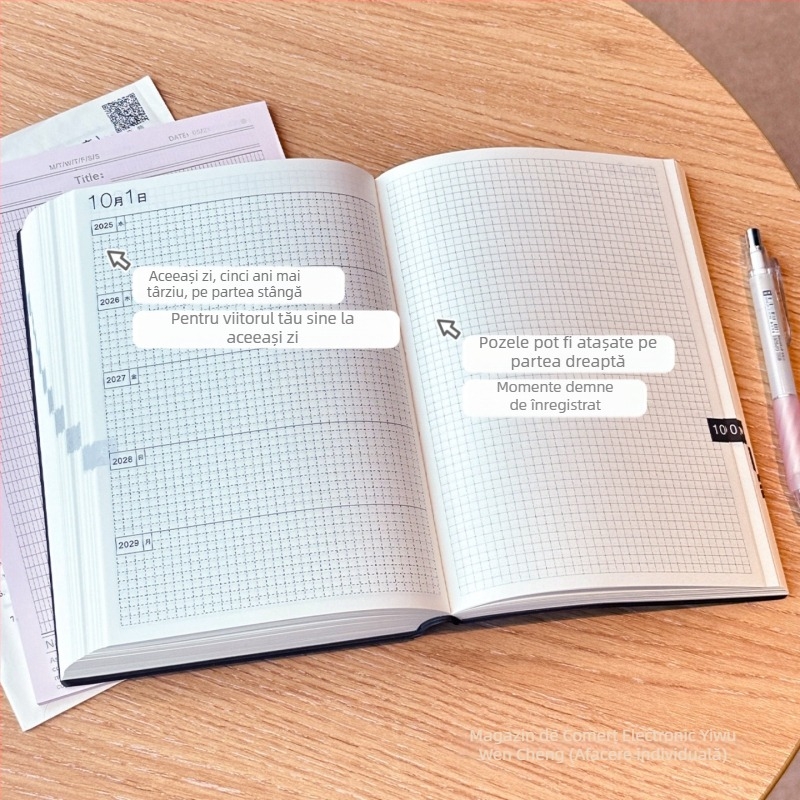 M/T/W/T/F/S/S
DATE:
Title:
10月1日
2025
Aceeași zi, cinci ani mai
târziu, pe partea stângă
2026
Pentru viitorul tău sine la
aceeași zi
Pozele pot fi atașate pe
partea dreaptă
2027
Momente demne
de înregistrat
2028 日
2029 月
Magazin de Comerț Electronic Yiwu
Wen Cheng (Afacere individuală)